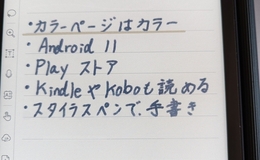 ・カラーページはカラー
・Android 11
・Play ストア
・KindleやKoboも読める
・スタイラスペンで、手書き